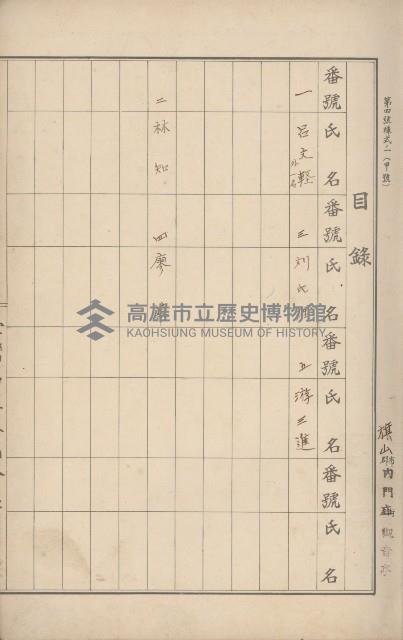 第四號樣式ノ一(甲號)
旗山郡內門庄觀音亭
目錄
番號 氏名 番號 氏名 番號 氏名 番號 氏名
一 呂文輕 外一名 三 刘氏 五 游三進
二 林知 四 廖
高雄市立歷史博物館
KAOHSIUNG MUSEUM OF HISTORY